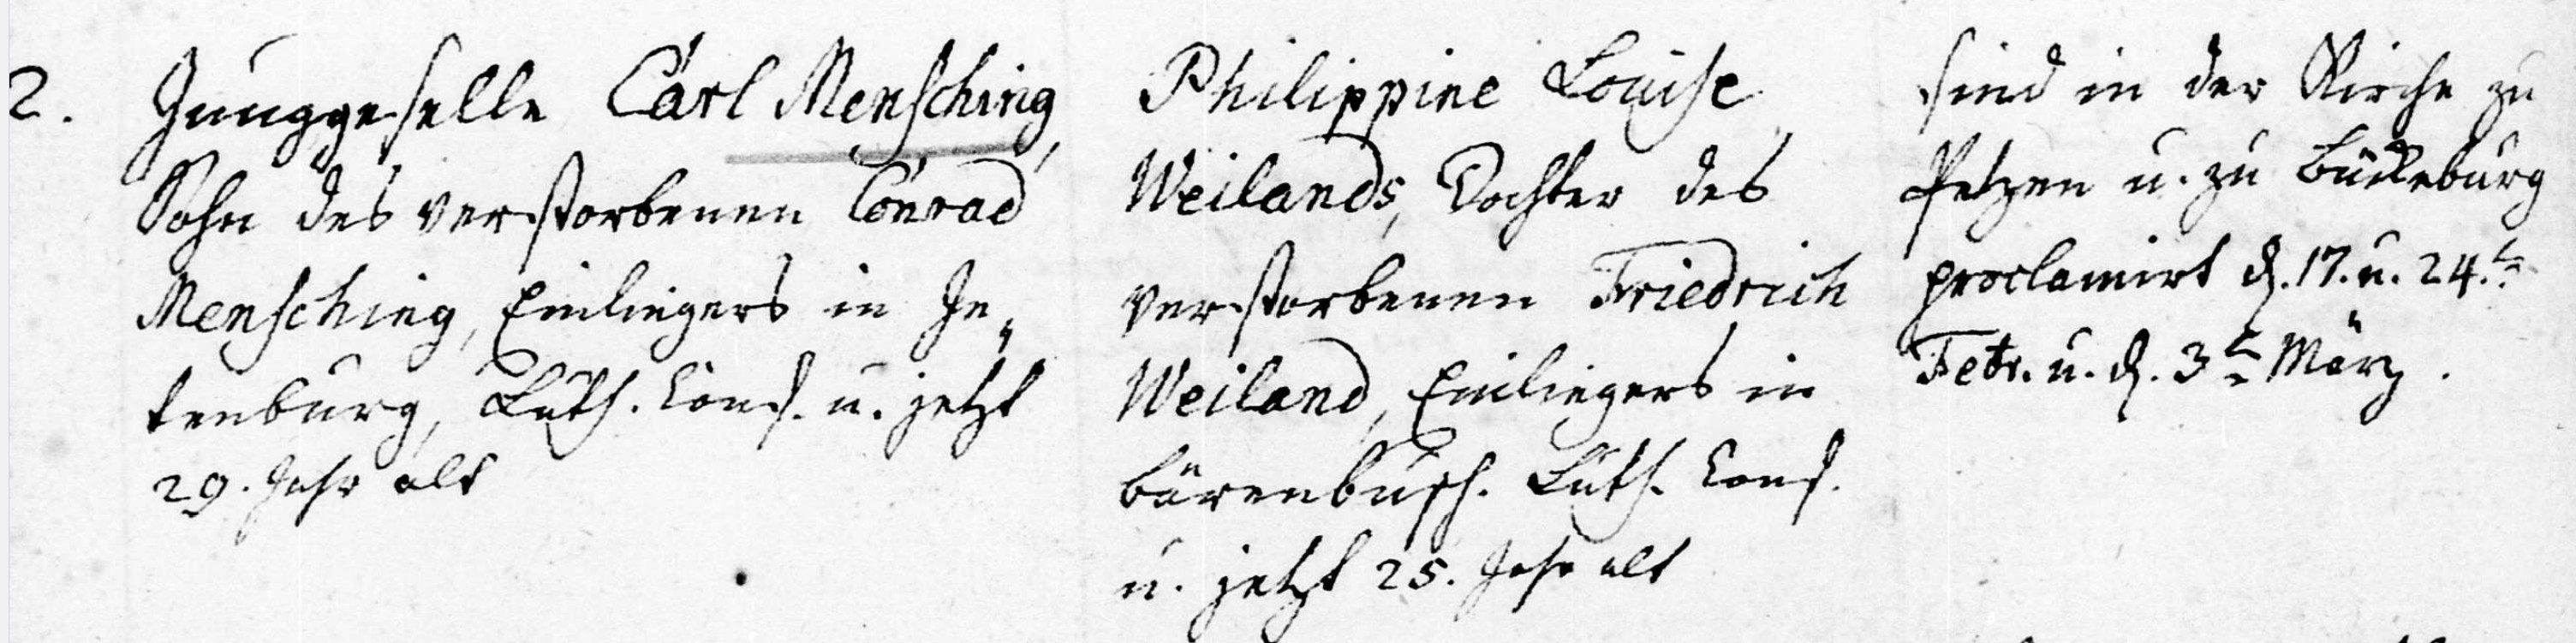 2.
Junggeselle Carl Mensching,
Sohn des verstorbenen Conrad
Mensching, Einliegers in Je„
tenburg, Luth. Conf. u. jetzt
29. Jahr alt
Philippine Louise
Weilands, Tochter des
verstorbenen Friedrich
Weiland, Einliegers in
Bärenbusch. Luth. Conf.
u. jetzt 25. Jahr alt
sind in der Kirche zu
Petzen u. zu Bückeburg
proclamirt d. 17. u. 24.ten
Febr. u. d. 3ten März.